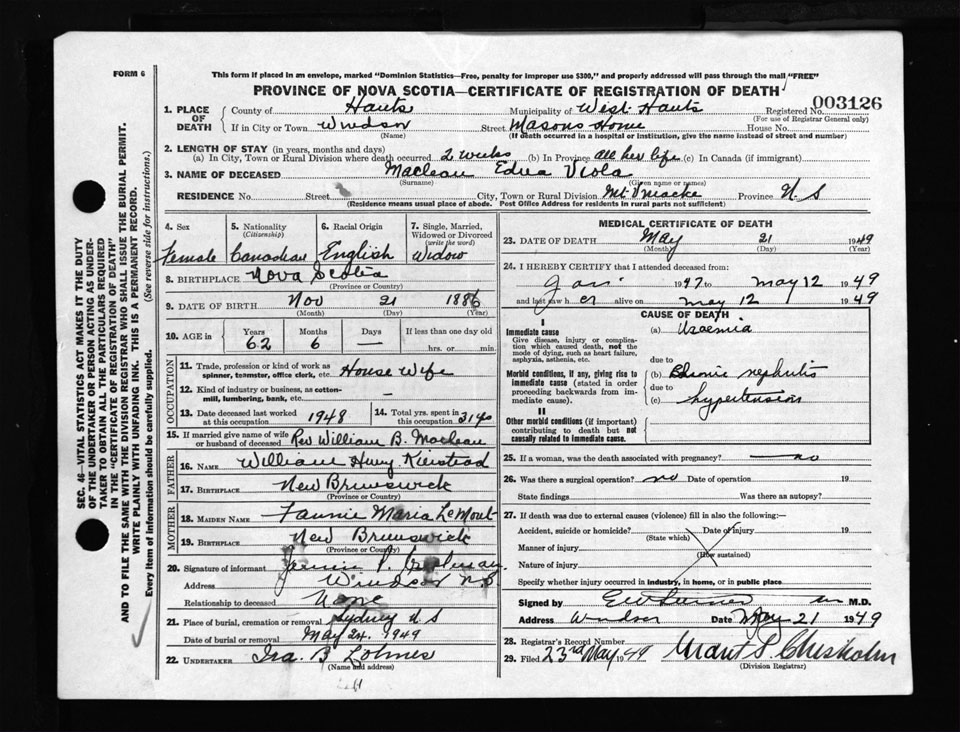 FORM 6
This form if placed in an envelope, marked "Dominion Statistics—Free, penalty for improper use $300," and properly addressed will pass through the mail "FREE"
PROVINCE OF NOVA SCOTIA—CERTIFICATE OF REGISTRATION OF DEATH
003126
1. PLACE OF DEATH
County of Hants Municipality of West Hants Registered No.
(For use of Registrar General only)
If in City or Town Windsor Street Masons Home House No.
(Name) (If death occurred in a hospital or institution, give the name instead of street and number)
2. LENGTH OF STAY (in years, months and days)
(a) In City, Town or Rural Division where death occurred 2 weeks (b) In Province all her life (c) In Canada (if immigrant)
3. NAME OF DECEASED Maclean Edna Viola
(Surname) (Given name or names)
RESIDENCE No. Street City, Town or Rural Division Mt Uniacke Province N. S
(Residence means usual place of abode. Post Office Address for residents in rural parts not sufficient)
4. Sex
Female
5. Nationality
(Citizenship)
Canadian
6. Racial Origin
English
7. Single, Married, Widowed or Divorced
(write the word)
Widow
8. BIRTHPLACE Nova Scotia
(Province or Country)
9. DATE OF BIRTH Nov 21 1886
(Month) (Day) (Year)
10. AGE in
Years Months Days If less than one day old
62 6 — hrs. or min.
OCCUPATION
11. Trade, profession or kind of work as spinner, teamster, office clerk, etc. House Wife
12. Kind of industry or business, as cotton-mill, lumbering, bank, etc. —
13. Date deceased last worked at this occupation 1948
14. Total yrs. spent in this occupation
15. If married give name of wife or husband of deceased Rev William B. Maclean
FATHER
16. NAME William Henry Kierstead
17. BIRTHPLACE New Brunswick
(Province or Country)
MOTHER
18. MAIDEN NAME Fannie Maria LeMont
19. BIRTHPLACE New Brunswick
(Province or Country)
20. Signature of informant
Address Windsor N.S
Relationship to deceased None
21. Place of burial, cremation or removal Sydney N S
Date of burial or removal May 24, 1949
22. UNDERTAKER Ira. B
(Name and address)
MEDICAL CERTIFICATE OF DEATH
23. DATE OF DEATH May 21 1949
(Month) (Day)
24. I HEREBY CERTIFY that I attended deceased from:
Jan 1947 to May 12 1949
and last saw her alive on May 12 1949
CAUSE OF DEATH
I
Immediate cause
Give disease, injury or complication which caused death, not the mode of dying, such as heart failure, asphyxia, asthenia, etc.
(a) Uraemia
due to
Morbid conditions, if any, giving rise to immediate cause (stated in order proceeding backwards from immediate cause).
(b) Chronic nephritis
due to
(c) hypertension
II
Other morbid conditions (if important) contributing to death but not causally related to immediate cause.
25. If a woman, was the death associated with pregnancy? — no
26. Was there a surgical operation? no Date of operation 19
State findings Was there an autopsy?
27. If death was due to external causes (violence) fill in also the following:—
Accident, suicide or homicide? Date of injury 19
(State which)
Manner of injury
(How sustained)
Nature of injury
Specify whether injury occurred in industry, in home, or in public place
Signed by M.D.
Address Windsor Date May 21 1949
28. Registrar's Record Number
29. Filed 23rd May 1949 Grant S. Chisholm
(Division Registrar)
SEC. 46—VITAL STATISTICS ACT MAKES IT THE DUTY
OF THE UNDERTAKER OR PERSON ACTING AS UNDER-
TAKER TO OBTAIN ALL THE PARTICULARS REQUIRED
IN THE "CERTIFICATE OF REGISTRATION OF DEATH"
AND TO FILE THE SAME WITH THE DIVISION REGISTRAR WHO SHALL ISSUE THE BURIAL PERMIT.
WRITE PLAINLY WITH UNFADING INK. THIS IS A PERMANENT RECORD.
Every item of information should be carefully supplied. (See reverse side for instructions.)